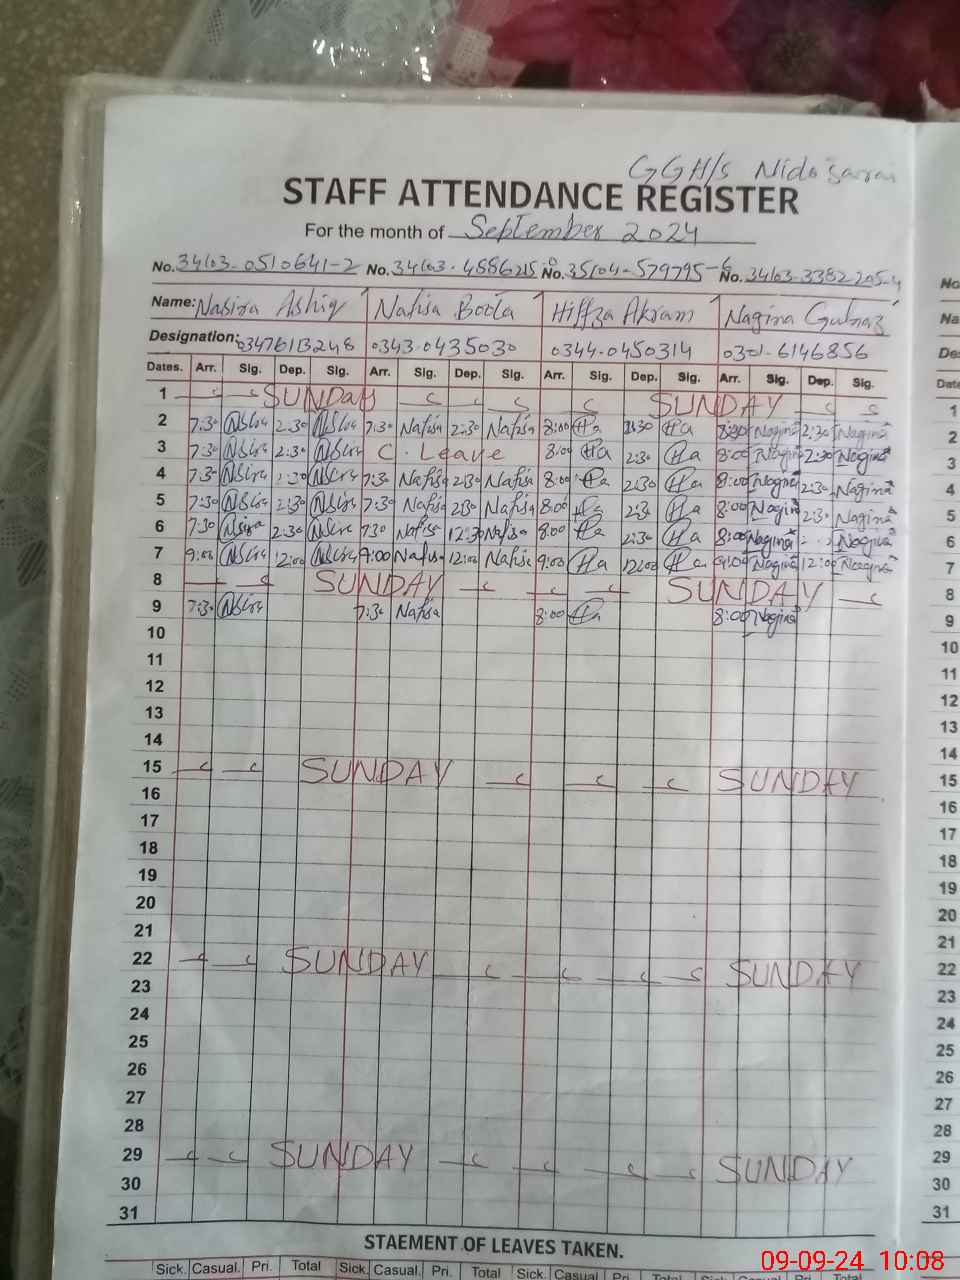 GGH/s Nido Sarai
STAFF ATTENDANCE REGISTER
For the month of September 2024
No. 34103-0510641-2 No. 34103-4886215-0 No. 35104-579795-6 No. 34103-3382205-4
Name: Nasira Ashiq Nafisa Boota Hiffza Akram Nagina Gulnaz
Designation: 03476113248 0343-0435030 0344-0450314 0301-6146856
Dates. Arr. Sig. Dep. Sig. Arr. Sig. Dep. Sig. Arr. Sig. Dep. Sig. Arr. Sig. Dep. Sig.
1 SUNDAY SUNDAY
2 7:30 2:30 7:30 Nafisa 2:30 Nafisa 8:00 Ha 2:30 Ha 8:00 Nagina 2:30 Nagina
3 7:30 2:30 C. Leave 8:00 Ha 2:30 Ha 8:00 Nagina 2:30 Nagina
4 7:30 2:30 7:30 Nafisa 2:30 Nafisa 8:00 Ha 2:30 Ha 8:00 Nagina 2:30 Nagina
5 7:30 2:30 7:30 Nafisa 2:30 Nafisa 8:00 Ha 2:30 Ha 8:00 Nagina 2:30 Nagina
6 7:30 2:30 7:30 Nafisa 12:30 Nafisa 8:00 Ha 2:30 Ha 8:00 Nagina Nagina
7 9:00 12:00 9:00 Nafisa 12:00 Nafisa 9:00 Ha 12:00 Ha 9:00 Nagina 12:00 Nagina
8 SUNDAY SUNDAY
9 7:30 7:30 Nafisa 8:00 Ha 8:00 Nagina
10
11
12
13
14
15 SUNDAY SUNDAY
16
17
18
19
20
21
22 SUNDAY SUNDAY
23
24
25
26
27
28
29 SUNDAY SUNDAY
30
31
STAEMENT OF LEAVES TAKEN.
Sick. Casual. Pri. Total Sick. Casual. Pri. Total Sick. Casual. Pri. Total Sick. Casual. Pri. Total
No
Na
De
Date
1
2
3
4
5
6
7
8
9
10
11
12
13
14
15
16
17
18
19
20
21
22
23
24
25
26
27
28
29
30
31
09-09-24 10:08